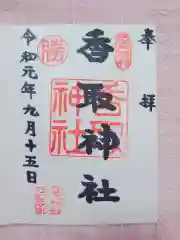 奉拝
香取神社
香取神社
勝
令和元年九月十五日